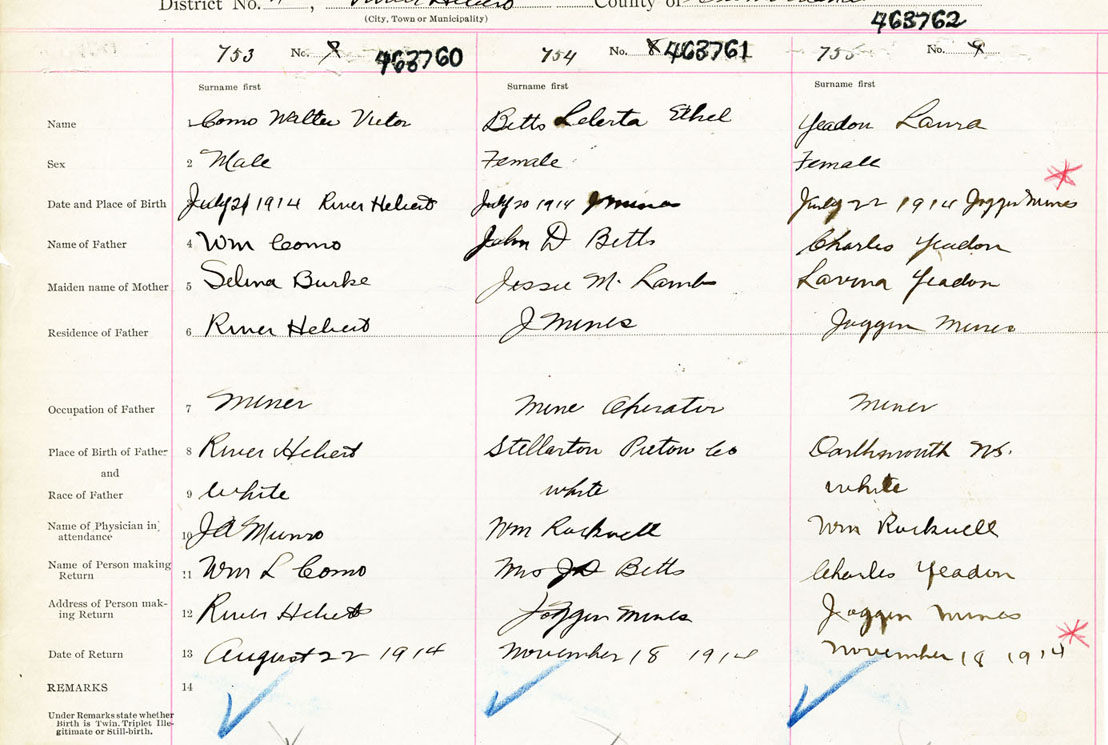 District No. , River Hebert County of
(City, Town or Municipality)
463762
753 No. 7 463760 754 No. 8 463761 755 No. 9
Surname first Surname first Surname first
Name Como Walter Victor Betts Lelerta Ethel Yeadon Laura
Sex 2 Male Female Female
Date and Place of Birth July 21 1914 River Hebert July 20 1914 J mines July 22 1914 Joggin Mines
Name of Father 4 Wm Como John D Betts Charles Yeadon
Maiden name of Mother 5 Selina Burke Jessie M. Lamb Lavina Yeadon
Residence of Father 6 River Hebert J Mines Joggin Mines
Occupation of Father 7 Miner Mine Operator Miner
Place of Birth of Father 8 River Hebert Stellarton Pictou Co Darthmouth NS.
and
Race of Father 9 White white white
Name of Physician in attendance 10 JA Munro Wm Rockwell Wm Rockwell
Name of Person making Return 11 Wm L Como Mrs JD Betts Charles Yeadon
Address of Person mak-
ing Return 12 River Hebert Joggin Mines Joggin Mines
Date of Return 13 August 22 1914 November 18 1914 November 18 1914
REMARKS 14
Under Remarks state whether
Birth is Twin, Triplet Ille-
gitimate or Still-birth.